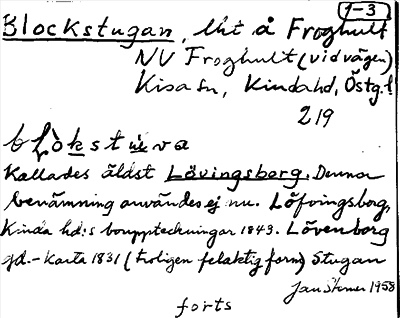 1-3
Blockstugan, lht å Froghult
NV Froghult (vid vägen)
Kisa sn, Kinda hd, Östg. l
219
blòkstuva
Kallades äldst Lövingsborg. Denna
benämning användes ej nu. Löfvingsborg,
Kinda hd:s bouppteckningar 1849. Lövenborg
gd.- karta 1831 (troligen felaktig form) Stugan
Jan Stemer 1958
forts